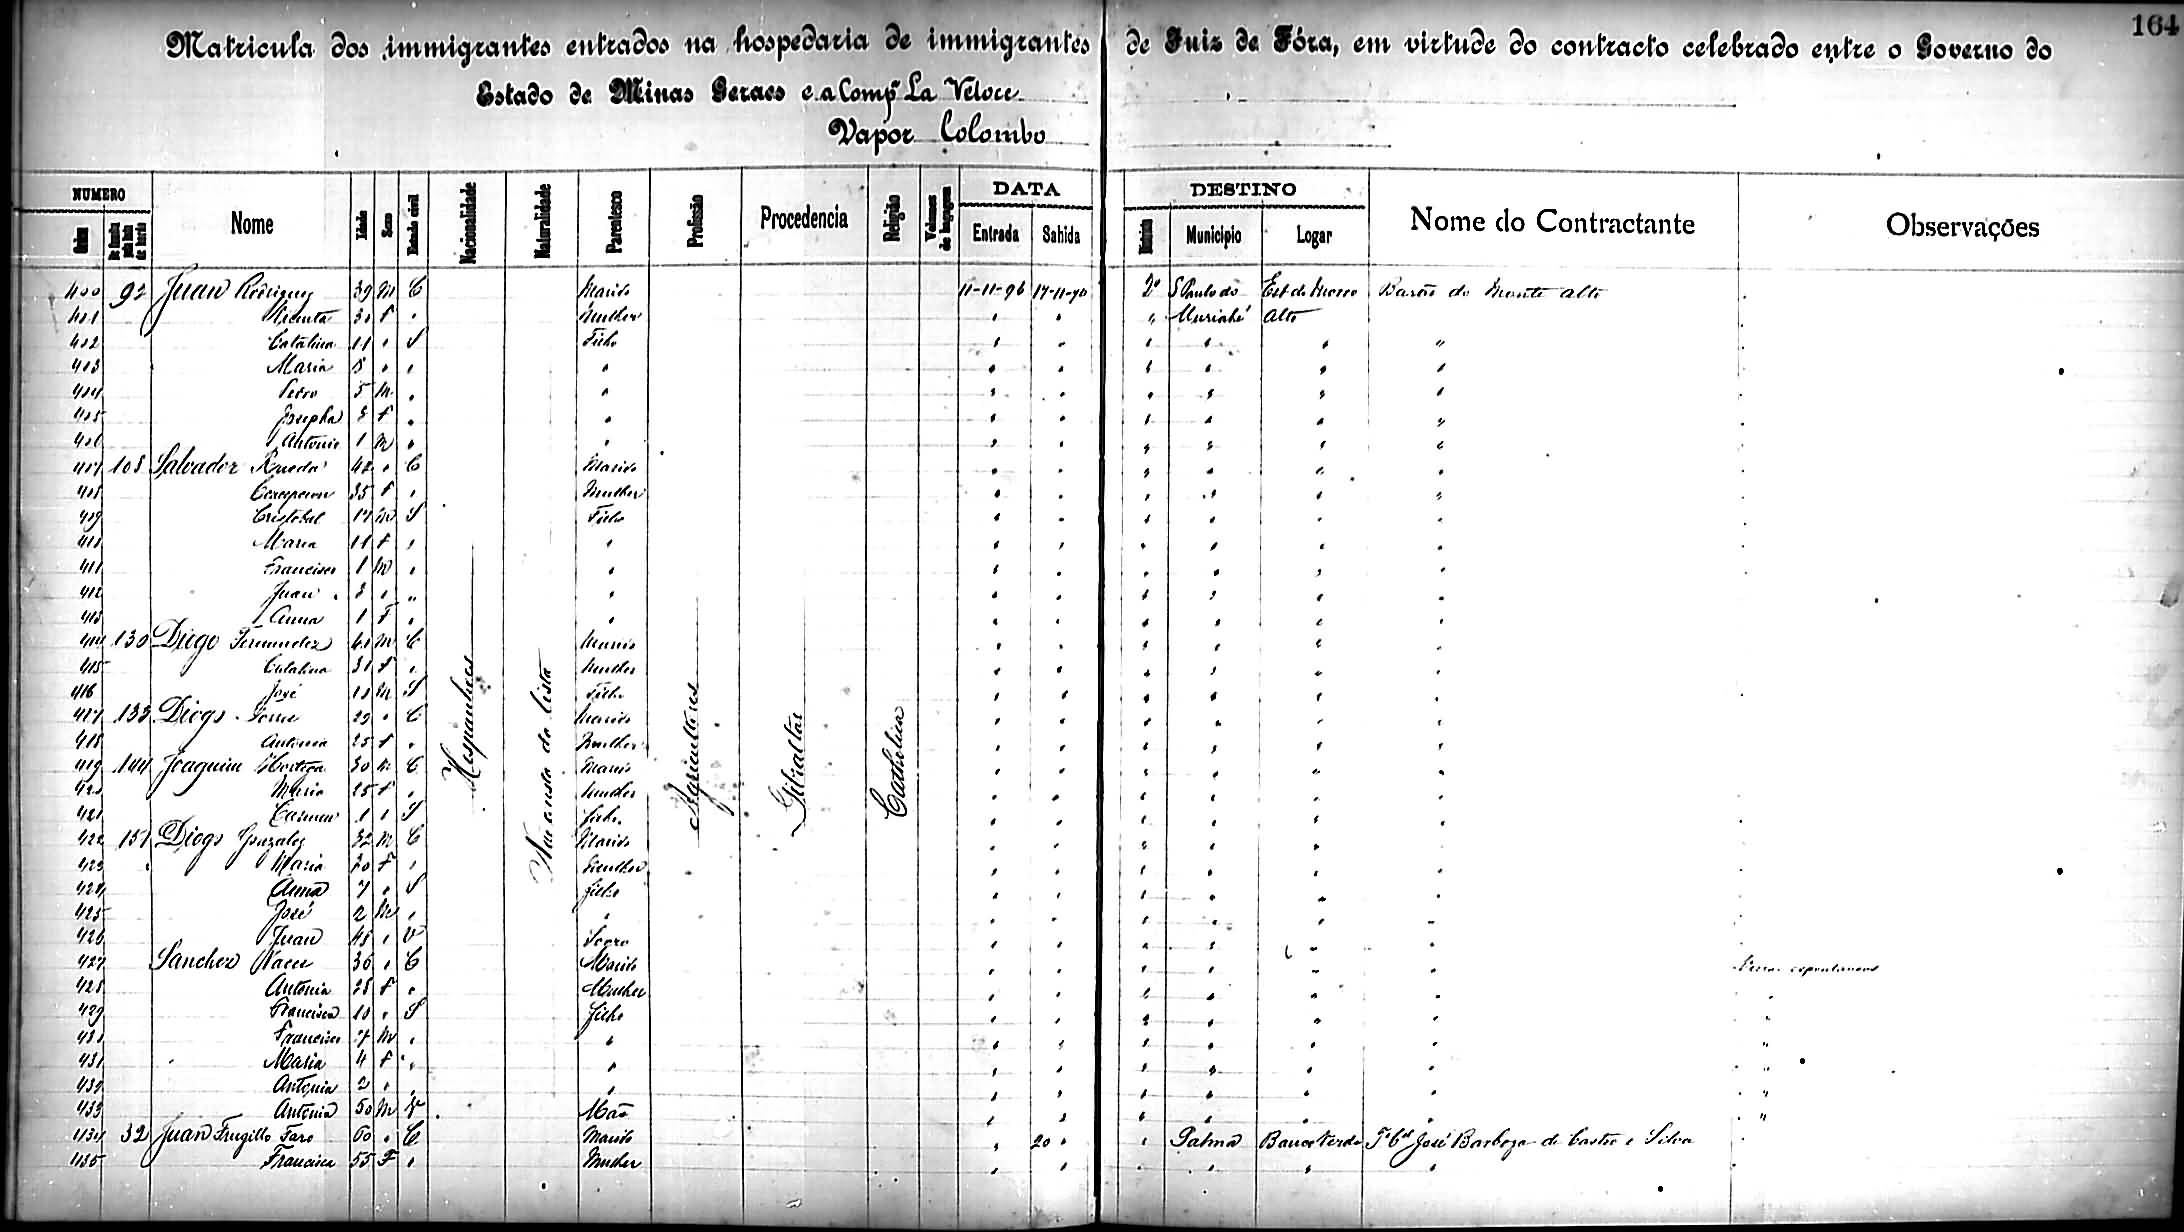 164
Matricula dos immigrantes entrados na hospedaria de immigrantes de Juiz de Fóra, em virtude do contracto celebrado entre o Governo do
Estado de Minas Geraes e a Compª La Veloce
Vapor Colombo
NUMERO Nome Idade Sexo Estado civil Nacionalidade Naturalidade Parentesco Profissão Procedencia Religião Volumes de bagagem DATA DESTINO Nome do Contractante Observações
Ordem Entrada Sahida Districto Municipio Logar
400 92 Juan Rodriguez 39 M C Marido 11-11-96 17-11-96 2º S Paulo do Est do Morro Barão do Monte Alto
401 31 F " Mulher " " " Muriahé Alto
402 Catalina 11 " S Filho " " " " " "
403 Maria 8 " " " " " " " " "
404 Pedro 5 M " " " " " " " "
405 Josepha 3 F " " " " " " " "
406 Antonio 1 M " " " " " " " "
407 108 Salvador Rueda 42 " C Marido " " " " " "
408 Concepcion 35 F " Mulher " " " " " "
409 Cristobal 17 M S Filho " " " " " "
410 Maria 11 F " " " " " " " "
411 Francisco 1 M " " " " " " " "
412 Juan 3 " " " " " " " " "
413 Anna 1 F " " " " " " " "
414 130 Diego Fernandez 41 M C Marido " " " " " "
415 Catalina 31 F " Mulher " " " " " "
416 José 10 M S Filho " " " " " "
417 133 Diogo 29 " C Marido " " " " " "
418 Antonia 25 F " Mulher " " " " " "
419 144 Joaquim 30 M C Marido " " " " " "
420 Maria 25 F " Mulher " " " " " "
421 Carmen 1 " S Filho " " " " " "
422 151 Diogo Gonzalez 32 M C Marido " " " " " "
423 Maria 30 F " Mulher " " " " " "
424 Anna 7 " S Filho " " " " " "
425 José 2 M " " " " " " " "
426 Juan 48 " V Sogro " " " " " "
427 Sanchez 36 " C Marido " " " " " " espontaneos
428 Antonia 28 F " Mulher " " " " " " "
429 Francisca 10 " S Filho " " " " " " "
430 Francisco 7 M " " " " " " " " "
431 Maria 4 F " " " " " " " " "
432 Antonia 2 " " " " " " " " "
433 Antonia 50 M V Mãe " " " " " " "
434 32 Juan Trugillo Faro 60 " C Marido " 20 " " Palma José Barboza de Castro e Silva
435 Francisca 55 F " Mulher " " " " " "
Hespanhoes
Não consta da lista
Agricultores
Gibraltar
Catholica